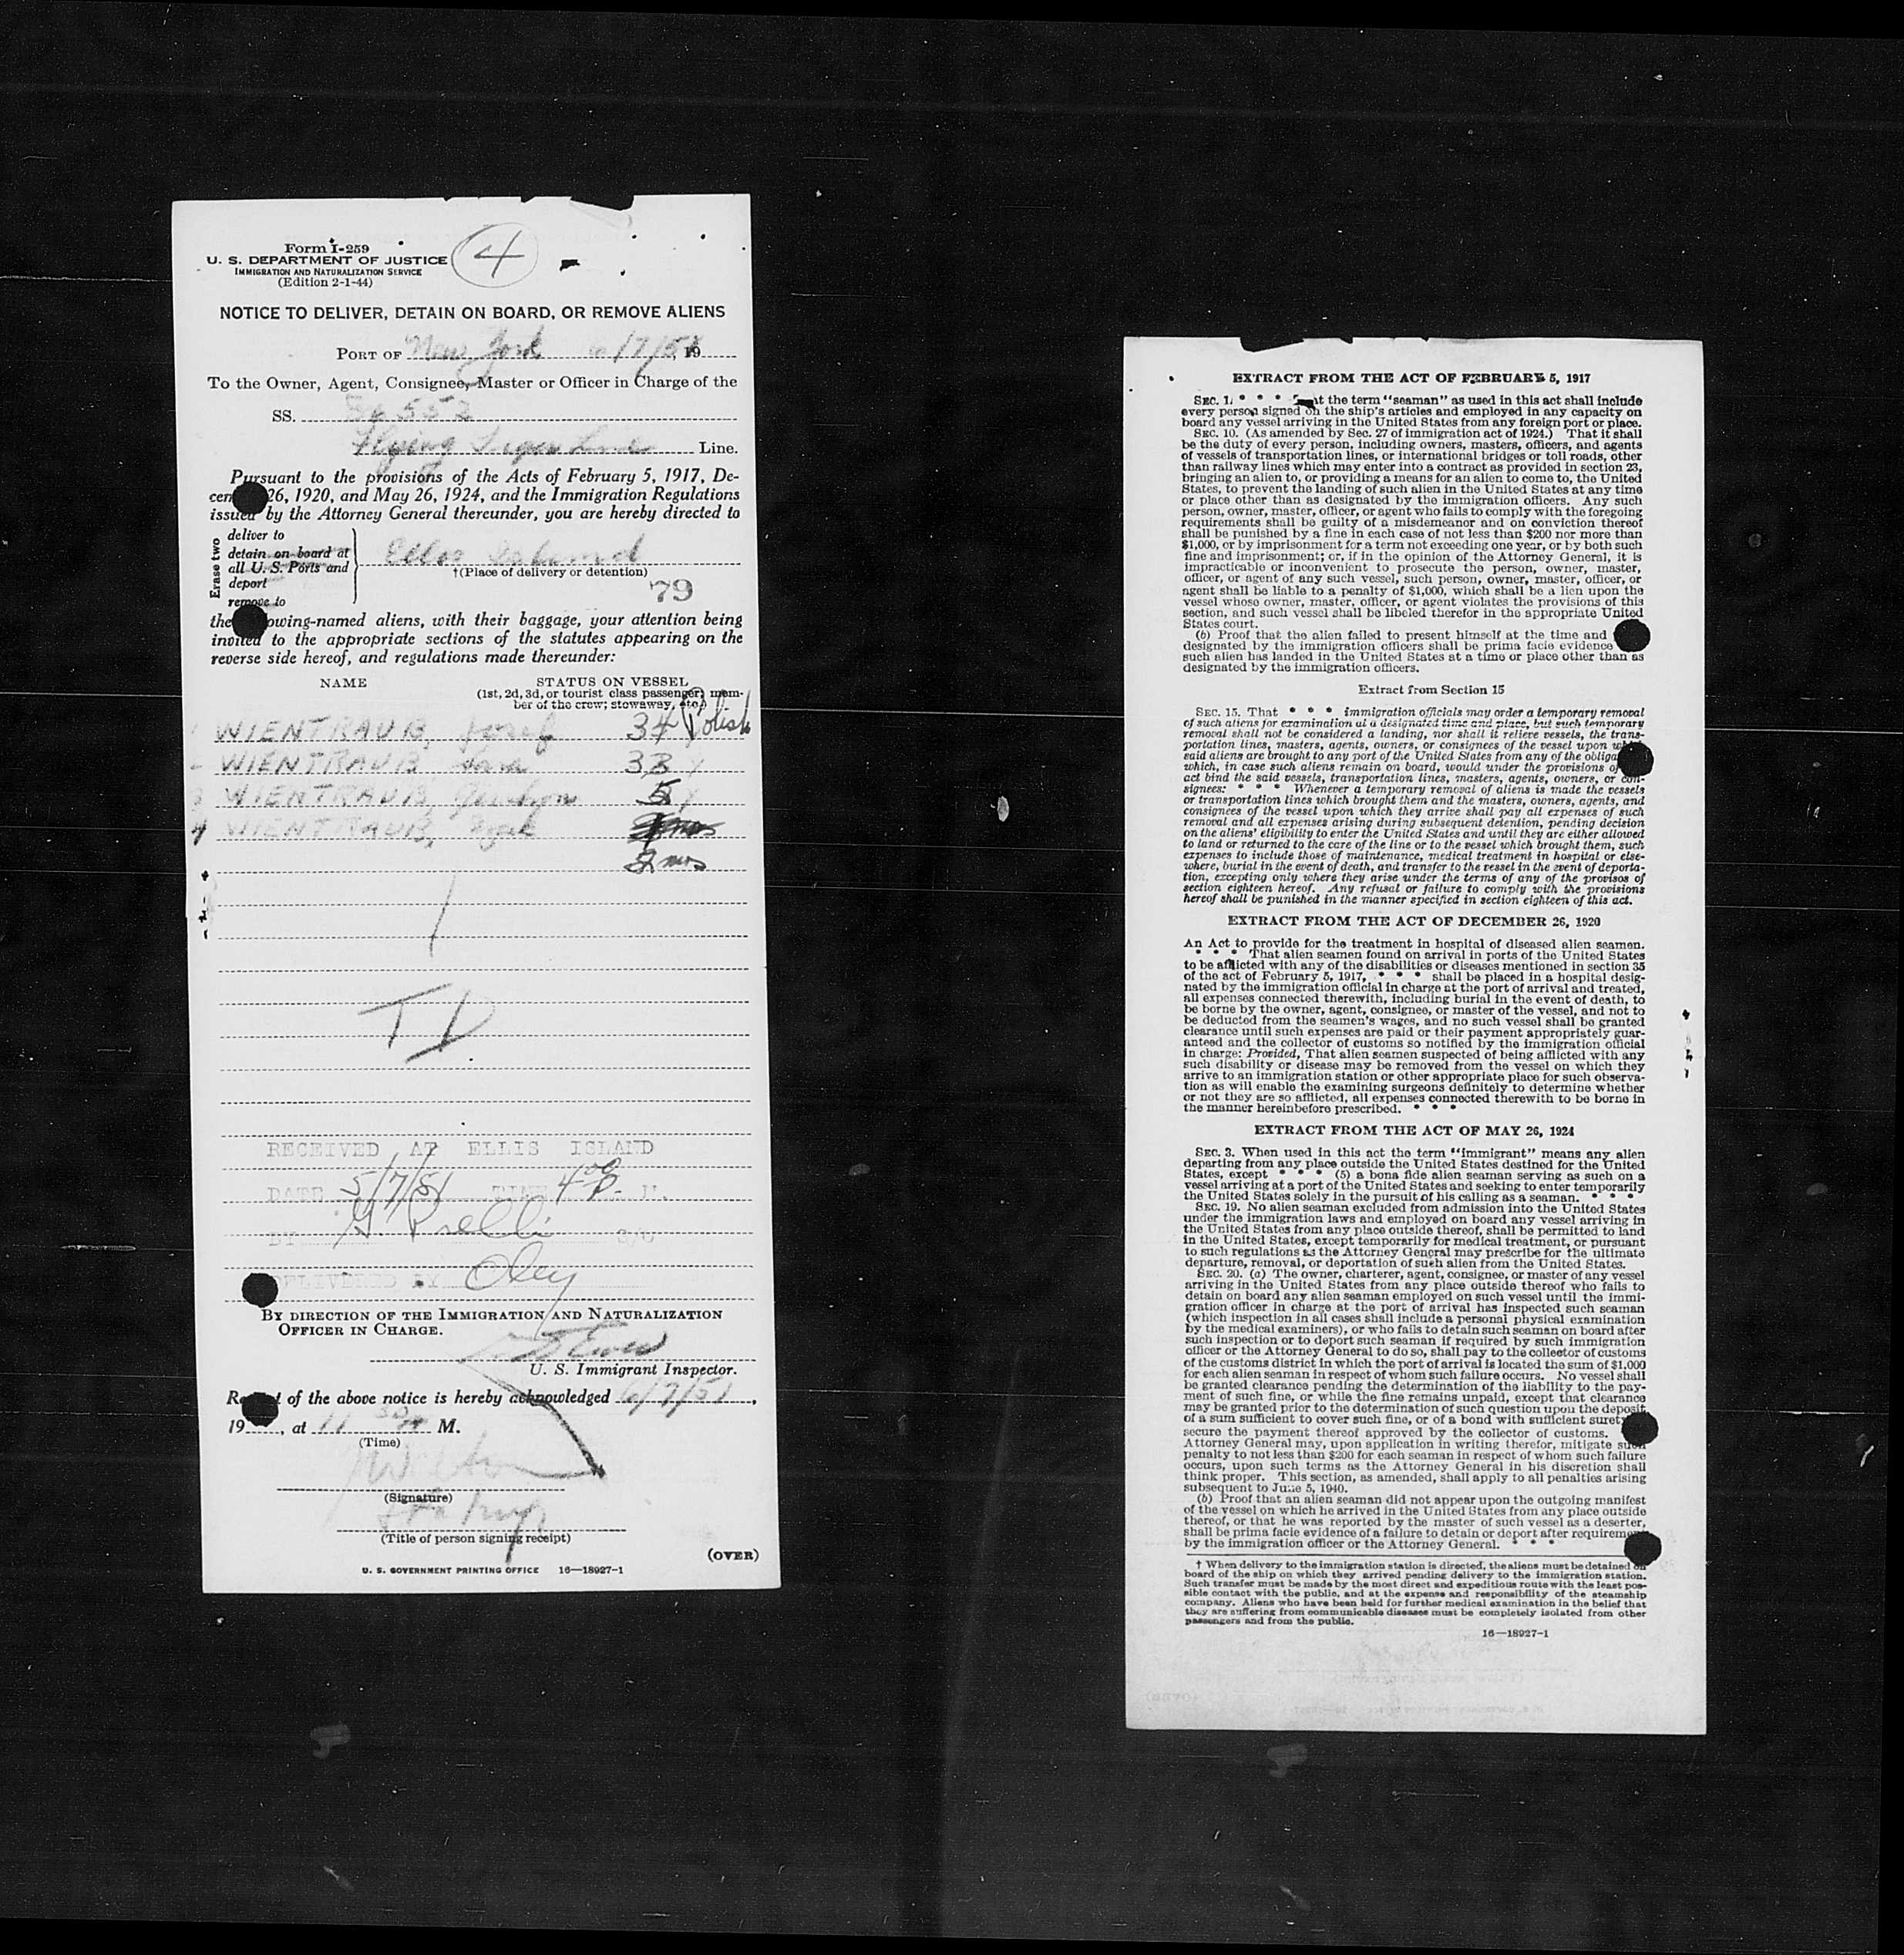 Form I-259
U. S. DEPARTMENT OF JUSTICE
IMMIGRATION AND NATURALIZATION SERVICE
(Edition 2-1-44)
4
NOTICE TO DELIVER, DETAIN ON BOARD, OR REMOVE ALIENS
PORT OF New York 6/7/51, 19
To the Owner, Agent, Consignee, Master or Officer in Charge of the
SS.
Flying Tiger Line Line.
Pursuant to the provisions of the Acts of February 5, 1917, De-
cem 26, 1920, and May 26, 1924, and the Immigration Regulations
issued by the Attorney General thereunder, you are hereby directed to
Erase two
deliver to
detain on board at
all U. S. Ports and
deport
remove to
Ellis Island
†(Place of delivery or detention)
79
the owing-named aliens, with their baggage, your attention being
invited to the appropriate sections of the statutes appearing on the
reverse side hereof, and regulations made thereunder:
NAME STATUS ON VESSEL
(1st, 2d, 3d, or tourist class passenger; mem-
ber of the crew; stowaway, etc.)
WIENTRAUB, Josef 34 Polish
WIENTRAUB, 33
WIENTRAUB, 5
4 WIENTRAUB,
2 mos
TD
RECEIVED AT ELLIS ISLAND
DATE 5/7/51 TIME 4 00 P. M.
BY
DELIVERED BY Oley
BY DIRECTION OF THE IMMIGRATION AND NATURALIZATION
OFFICER IN CHARGE.
U. S. Immigrant Inspector.
Re t of the above notice is hereby acknowledged 6/7/51,
19, at 11 30 M.
(Time)
(Signature)
(Title of person signing receipt)
(OVER)
U. S. GOVERNMENT PRINTING OFFICE 16—18927-1
EXTRACT FROM THE ACT OF FEBRUARY 5, 1917
SEC. 1. * * * at the term "seaman" as used in this act shall include
every person signed on the ship's articles and employed in any capacity on
board any vessel arriving in the United States from any foreign port or place.
SEC. 10. (As amended by Sec. 27 of immigration act of 1924.) That it shall
be the duty of every person, including owners, masters, officers, and agents
of vessels of transportation lines, or international bridges or toll roads, other
than railway lines which may enter into a contract as provided in section 23,
bringing an alien to, or providing a means for an alien to come to, the United
States, to prevent the landing of such alien in the United States at any time
or place other than as designated by the immigration officers. Any such
person, owner, master, officer, or agent who fails to comply with the foregoing
requirements shall be guilty of a misdemeanor and on conviction thereof
shall be punished by a fine in each case of not less than $200 nor more than
$1,000, or by imprisonment for a term not exceeding one year, or by both such
fine and imprisonment; or, if in the opinion of the Attorney General, it is
impracticable or inconvenient to prosecute the person, owner, master,
officer, or agent of any such vessel, such person, owner, master, officer, or
agent shall be liable to a penalty of $1,000, which shall be a lien upon the
vessel whose owner, master, officer, or agent violates the provisions of this
section, and such vessel shall be libeled therefor in the appropriate United
States court.
(b) Proof that the alien failed to present himself at the time and
designated by the immigration officers shall be prima facie evidence
such alien has landed in the United States at a time or place other than as
designated by the immigration officers.
Extract from Section 15
SEC. 15. That * * * immigration officials may order a temporary removal
of such aliens for examination at a designated time and place, but such temporary
removal shall not be considered a landing, nor shall it relieve vessels, the trans-
portation lines, masters, agents, owners, or consignees of the vessel upon which
said aliens are brought to any port of the United States from any of the obliga
which, in case such aliens remain on board, would under the provisions of
act bind the said vessels, transportation lines, masters, agents, owners, or con-
signees: * * * Whenever a temporary removal of aliens is made the vessels
or transportation lines which brought them and the masters, owners, agents, and
consignees of the vessel upon which they arrive shall pay all expenses of such
removal and all expenses arising during subsequent detention, pending decision
on the aliens' eligibility to enter the United States and until they are either allowed
to land or returned to the care of the line or to the vessel which brought them, such
expenses to include those of maintenance, medical treatment in hospital or else-
where, burial in the event of death, and transfer to the vessel in the event of deporta-
tion, excepting only where they arise under the terms of any of the provisos of
section eighteen hereof. Any refusal or failure to comply with the provisions
hereof shall be punished in the manner specified in section eighteen of this act.
EXTRACT FROM THE ACT OF DECEMBER 26, 1920
An Act to provide for the treatment in hospital of diseased alien seamen.
* * * That alien seamen found on arrival in ports of the United States
to be afflicted with any of the disabilities or diseases mentioned in section 35
of the act of February 5, 1917, * * * shall be placed in a hospital desig-
nated by the immigration official in charge at the port of arrival and treated,
all expenses connected therewith, including burial in the event of death, to
be borne by the owner, agent, consignee, or master of the vessel, and not to
be deducted from the seamen's wages, and no such vessel shall be granted
clearance until such expenses are paid or their payment appropriately guar-
anteed and the collector of customs so notified by the immigration official
in charge: Provided, That alien seamen suspected of being afflicted with any
such disability or disease may be removed from the vessel on which they
arrive to an immigration station or other appropriate place for such observa-
tion as will enable the examining surgeons definitely to determine whether
or not they are so afflicted, all expenses connected therewith to be borne in
the manner hereinbefore prescribed. * * *
EXTRACT FROM THE ACT OF MAY 26, 1924
SEC. 3. When used in this act the term "immigrant" means any alien
departing from any place outside the United States destined for the United
States, except * * * (5) a bona fide alien seaman serving as such on a
vessel arriving at a port of the United States and seeking to enter temporarily
the United States solely in the pursuit of his calling as a seaman. * * *
SEC. 19. No alien seaman excluded from admission into the United States
under the immigration laws and employed on board any vessel arriving in
the United States from any place outside thereof, shall be permitted to land
in the United States, except temporarily for medical treatment, or pursuant
to such regulations as the Attorney General may prescribe for the ultimate
departure, removal, or deportation of such alien from the United States.
SEC. 20. (a) The owner, charterer, agent, consignee, or master of any vessel
arriving in the United States from any place outside thereof who fails to
detain on board any alien seaman employed on such vessel until the immi-
gration officer in charge at the port of arrival has inspected such seaman
(which inspection in all cases shall include a personal physical examination
by the medical examiners), or who fails to detain such seaman on board after
such inspection or to deport such seaman if required by such immigration
officer or the Attorney General to do so, shall pay to the collector of customs
of the customs district in which the port of arrival is located the sum of $1,000
for each alien seaman in respect of whom such failure occurs. No vessel shall
be granted clearance pending the determination of the liability to the pay-
ment of such fine, or while the fine remains unpaid, except that clearance
may be granted prior to the determination of such question upon the deposit
of a sum sufficient to cover such fine, or of a bond with sufficient suret
secure the payment thereof approved by the collector of customs.
Attorney General may, upon application in writing therefor, mitigate such
penalty to not less than $200 for each seaman in respect of whom such failure
occurs, upon such terms as the Attorney General in his discretion shall
think proper. This section, as amended, shall apply to all penalties arising
subsequent to June 5, 1940.
(b) Proof that an alien seaman did not appear upon the outgoing manifest
of the vessel on which he arrived in the United States from any place outside
thereof, or that he was reported by the master of such vessel as a deserter,
shall be prima facie evidence of a failure to detain or deport after requirement
by the immigration officer or the Attorney General. * * *
† When delivery to the immigration station is directed, the aliens must be detained on
board of the ship on which they arrived pending delivery to the immigration station.
Such transfer must be made by the most direct and expeditious route with the least pos-
sible contact with the public, and at the expense and responsibility of the steamship
company. Aliens who have been held for further medical examination in the belief that
they are suffering from communicable diseases must be completely isolated from other
passengers and from the public.
16—18927-1